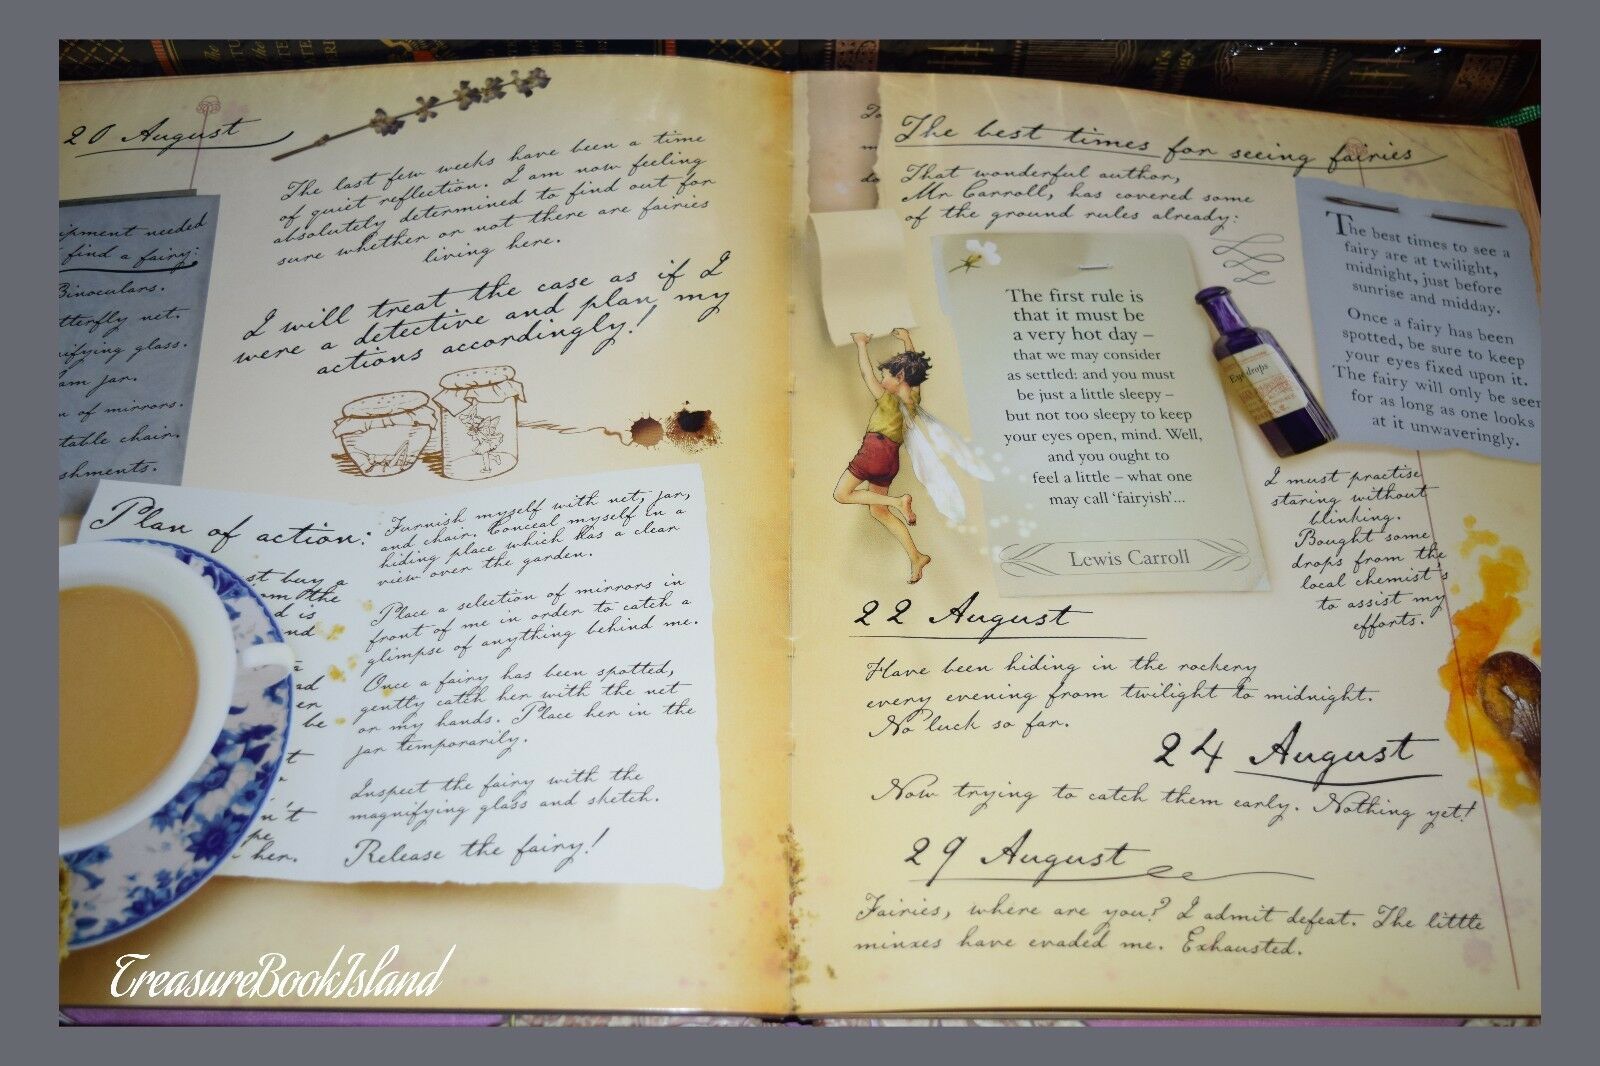 20 August
The last few weeks have been a time
of quiet reflection. I am now feeling
absolutely determined to find out for
sure whether or not there are fairies
living here.
I will treat the case as if I
were a detective and plan my
actions accordingly!
needed
find a fairy:
Binoculars.
net.
glass.
jar.
of mirrors.
chair.
Plan of action:
st buy a
om the
d is
nd
ad
er
be
t
n't
pe
her.
Furnish myself with net, jar,
and chair. Conceal myself in a
hiding place which has a clear
view over the garden.
Place a selection of mirrors in
front of me in order to catch a
glimpse of anything behind me.
Once a fairy has been spotted,
gently catch her with the net
or my hands. Place her in the
jar temporarily.
Inspect the fairy with the
magnifying glass and sketch.
Release the fairy!
The best times for seeing fairies
That wonderful author,
Mr Carroll, has covered some
of the ground rules already:
The first rule is
that it must be
a very hot day –
that we may consider
as settled: and you must
be just a little sleepy –
but not too sleepy to keep
your eyes open, mind. Well,
and you ought to
feel a little – what one
may call ‘fairyish’...
Lewis Carroll
Eye drops
The best times to see a
fairy are at twilight,
midnight, just before
sunrise and midday.
Once a fairy has been
spotted, be sure to keep
your eyes fixed upon it.
The fairy will only be seen
for as long as one looks
at it unwaveringly.
I must practise
staring without
blinking.
Bought some
drops from the
local chemist's
to assist my
efforts.
22 August
Have been hiding in the rockery
every evening from twilight to midnight.
No luck so far.
24 August
Now trying to catch them early. Nothing yet!
29 August
Fairies, where are you? I admit defeat. The little
minxes have evaded me. Exhausted.
TreasureBookIsland